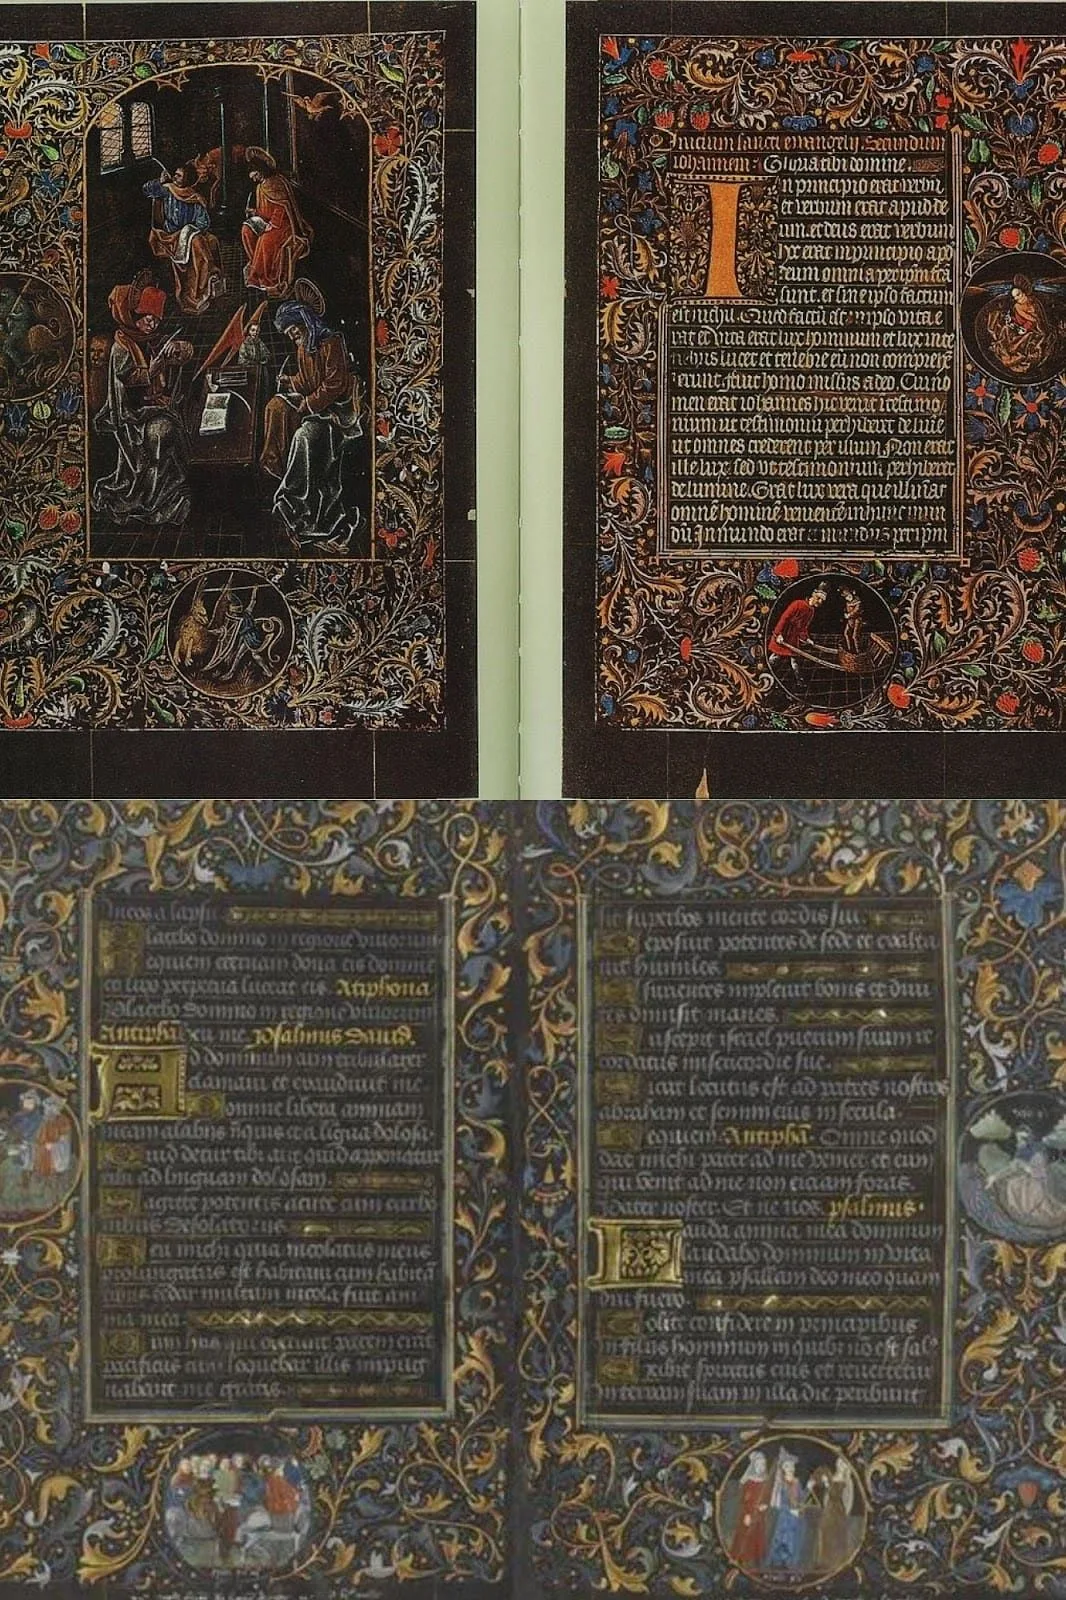 Inicium sancti evangelij Secundum
iohannem Gloria tibi domine
In principio erat verbū
et verbum erat apud de
um et deus erat verbum
hoc erat in principio apd
deum omnia per ipm fctā
sunt et sine ipso factum
est nichil Quod factū est in ipso vita e
rat et vita erat lux hominum et lux in te
nebris lucet et tenebre eū non comprehē
derunt fuit homo missus a deo Cui no
men erat iohannes hic venit i testimo
nium ut testimoniū perhiberet de lu
ut omnes crederent per illum Non erat
ille lux sed ut testimonium perhiberet
de lumine Erat lux vera que illūiāt
omnē hominē venientē in hunc mun
dū In mundo erat et mundus per ipm
Placebo domino in regione vivorum
Requiem eternam dona eis domine
et lux perpetua luceat eis Atiphona
Placebo domino in regione vivorum
Antiphā heu me psalmus David.
Ad dominum cum tribularer
clamavi et exaudivit me
Domine libera animam
meam a labijs iniquis et a ligua dolosa
Quid detur tibi aut quid apponatur
tibi ad linguam dolosam.
Sagitte potentis acute cum carbo
nibus desolatorijs
Heu michi quia incolatus meus
prolongatus est habitavi cum habitā
cedar multum incola fuit ani
ma mea.
Cum his qui oderunt pacem erā
pacificus cum loquebar illis impug
nabant me gratis
sit superbos mente cordis sui.
Deposuit potentes de sede et exalta
vit humiles.
Esurientes implevit bonis et divi
tes dimisit inanes.
Suscepit israel puerum suum re
cordatus misericordie sue.
Sicut locutus est ad patres nostros
abraham et semini eius in secula.
Requiem Antiphā. Omne quod
dat michi pater ad me veniet et eum
qui venit ad me non eiciam foras.
Pater noster. Et ne nos. psalmus.
Lauda anima mea dominum
laudabo dominum in vita
mea psallam deo meo quam
diu fuero.
Nolite confidere in principibus
in filijs hominum in quib' nō est sal'
Exibit spiritus eius et revertetur
in terram suam in illa die peribunt